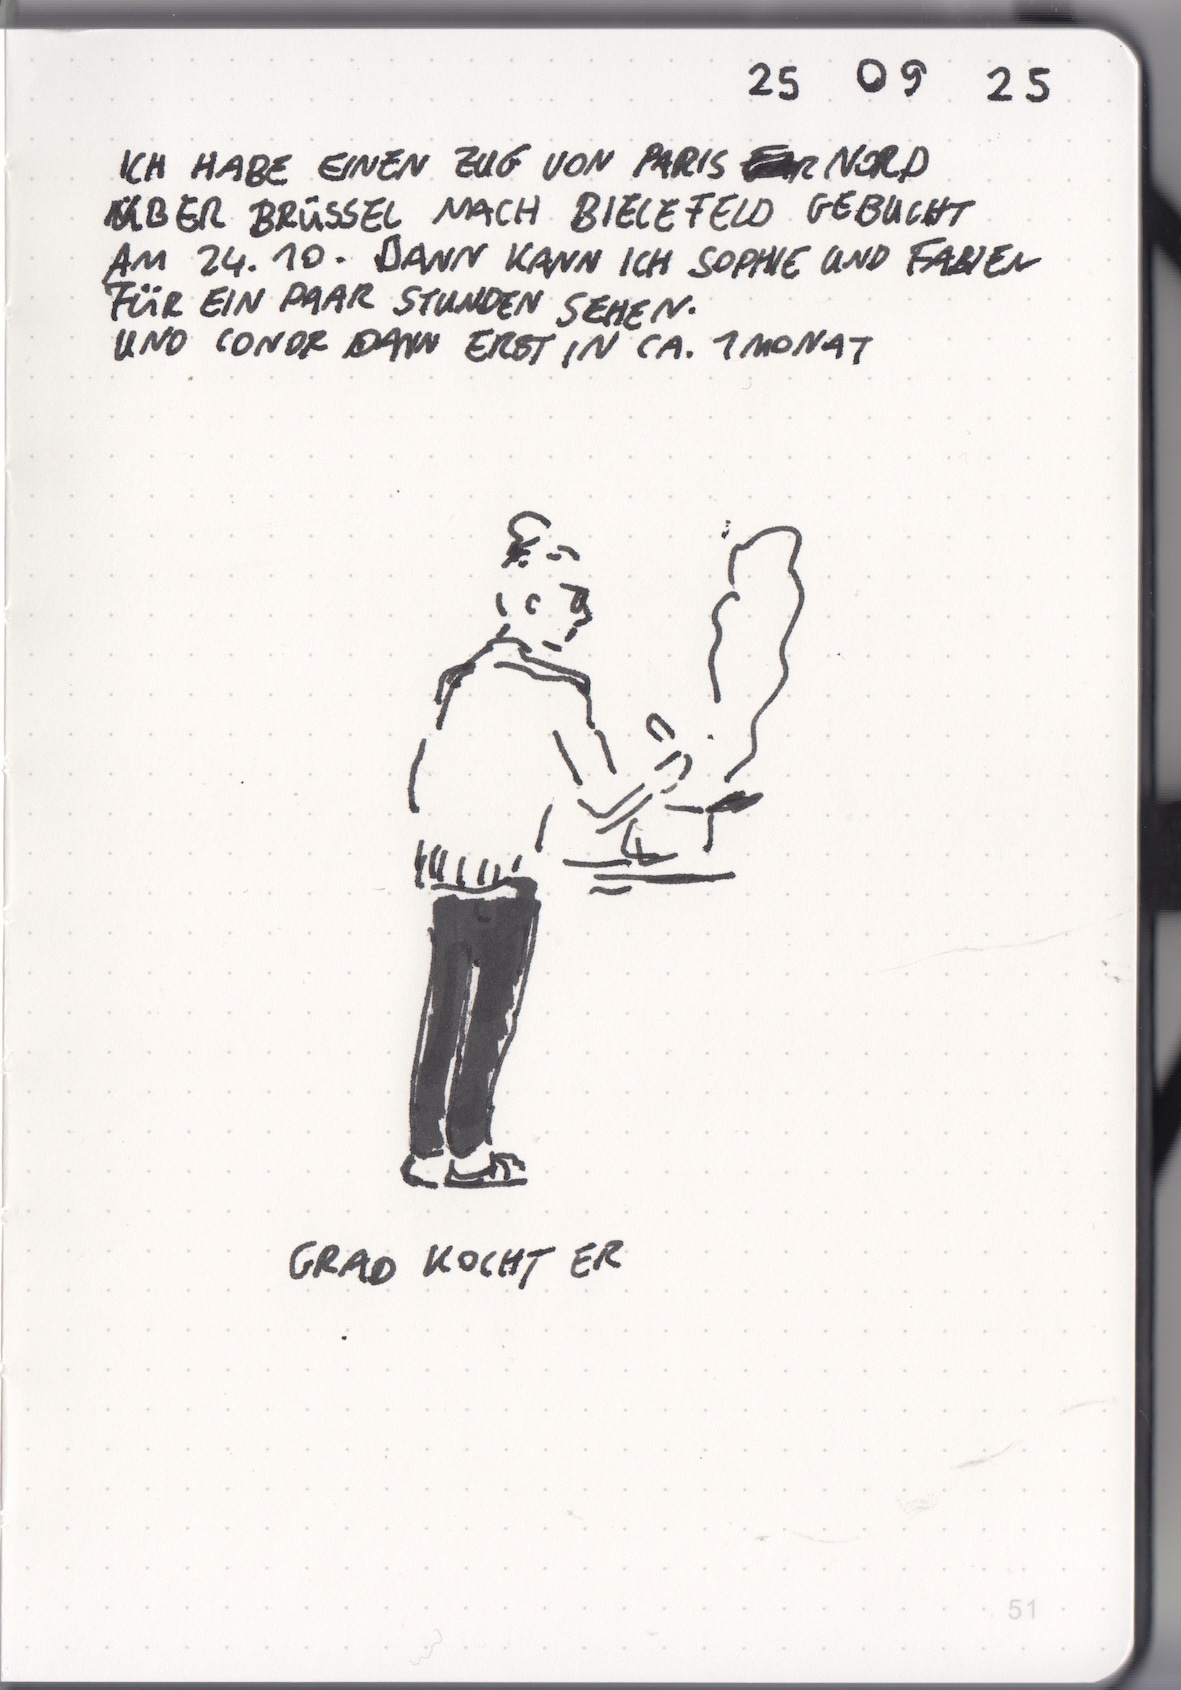 25 09 25
ICH HABE EINEN ZUG VON PARIS NORD
ÜBER BRÜSSEL NACH BIELEFELD GEBUCHT
AM 24.10. DANN KANN ICH SOPHIE UND FABIEN
FÜR EIN PAAR STUNDEN SEHEN.
UND DANN ERST IN CA. 1 MONAT
GRAD KOCHT ER
51